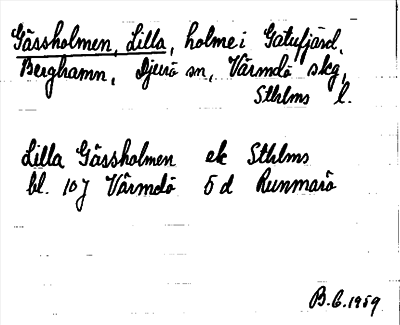 Gåssholmen, Lilla, holme i Gatufjärd,
Berghamn, Djurö sn, Värmdö skg,
Sthlms l.
Lilla Gåssholmen ek Sthlms
bl. 10 J Värmdö 5 d Runmarö
B.C. 1959